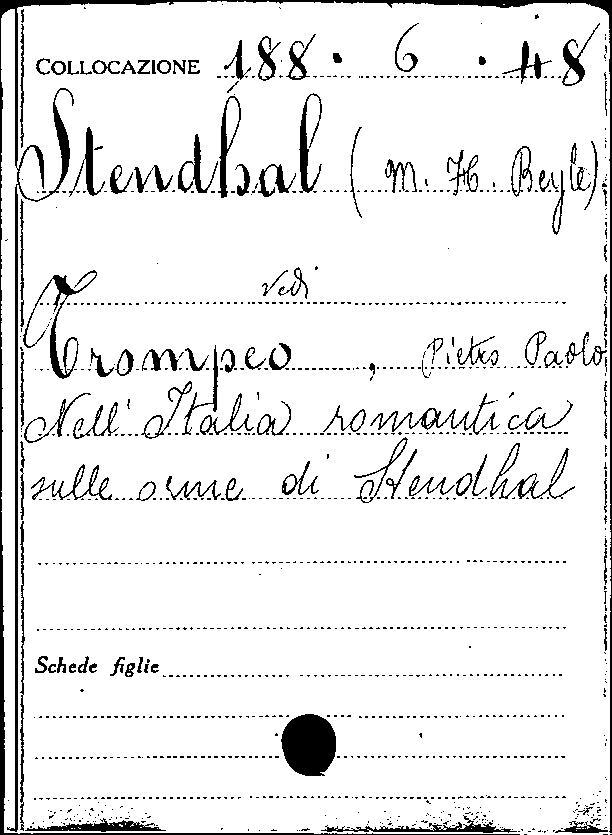 COLLOCAZIONE 188 . 6 . 48
Stendhal ( M. H. Beyle)
vedi
Trompeo , Pietro Paolo
Nell' Italia romantica
sulle orme di Stendhal
Schede figlie